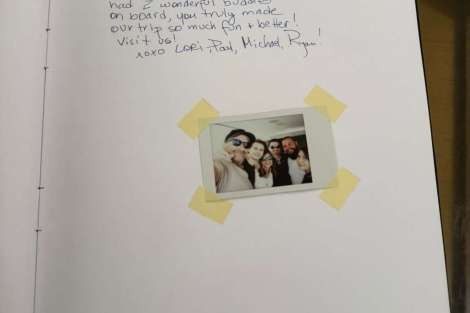 had 2 wonderful buddies
on board, you truly made
our trip so much fun + better!
Visit us!
xoxo Lori, Paul, Michael, Ryan!